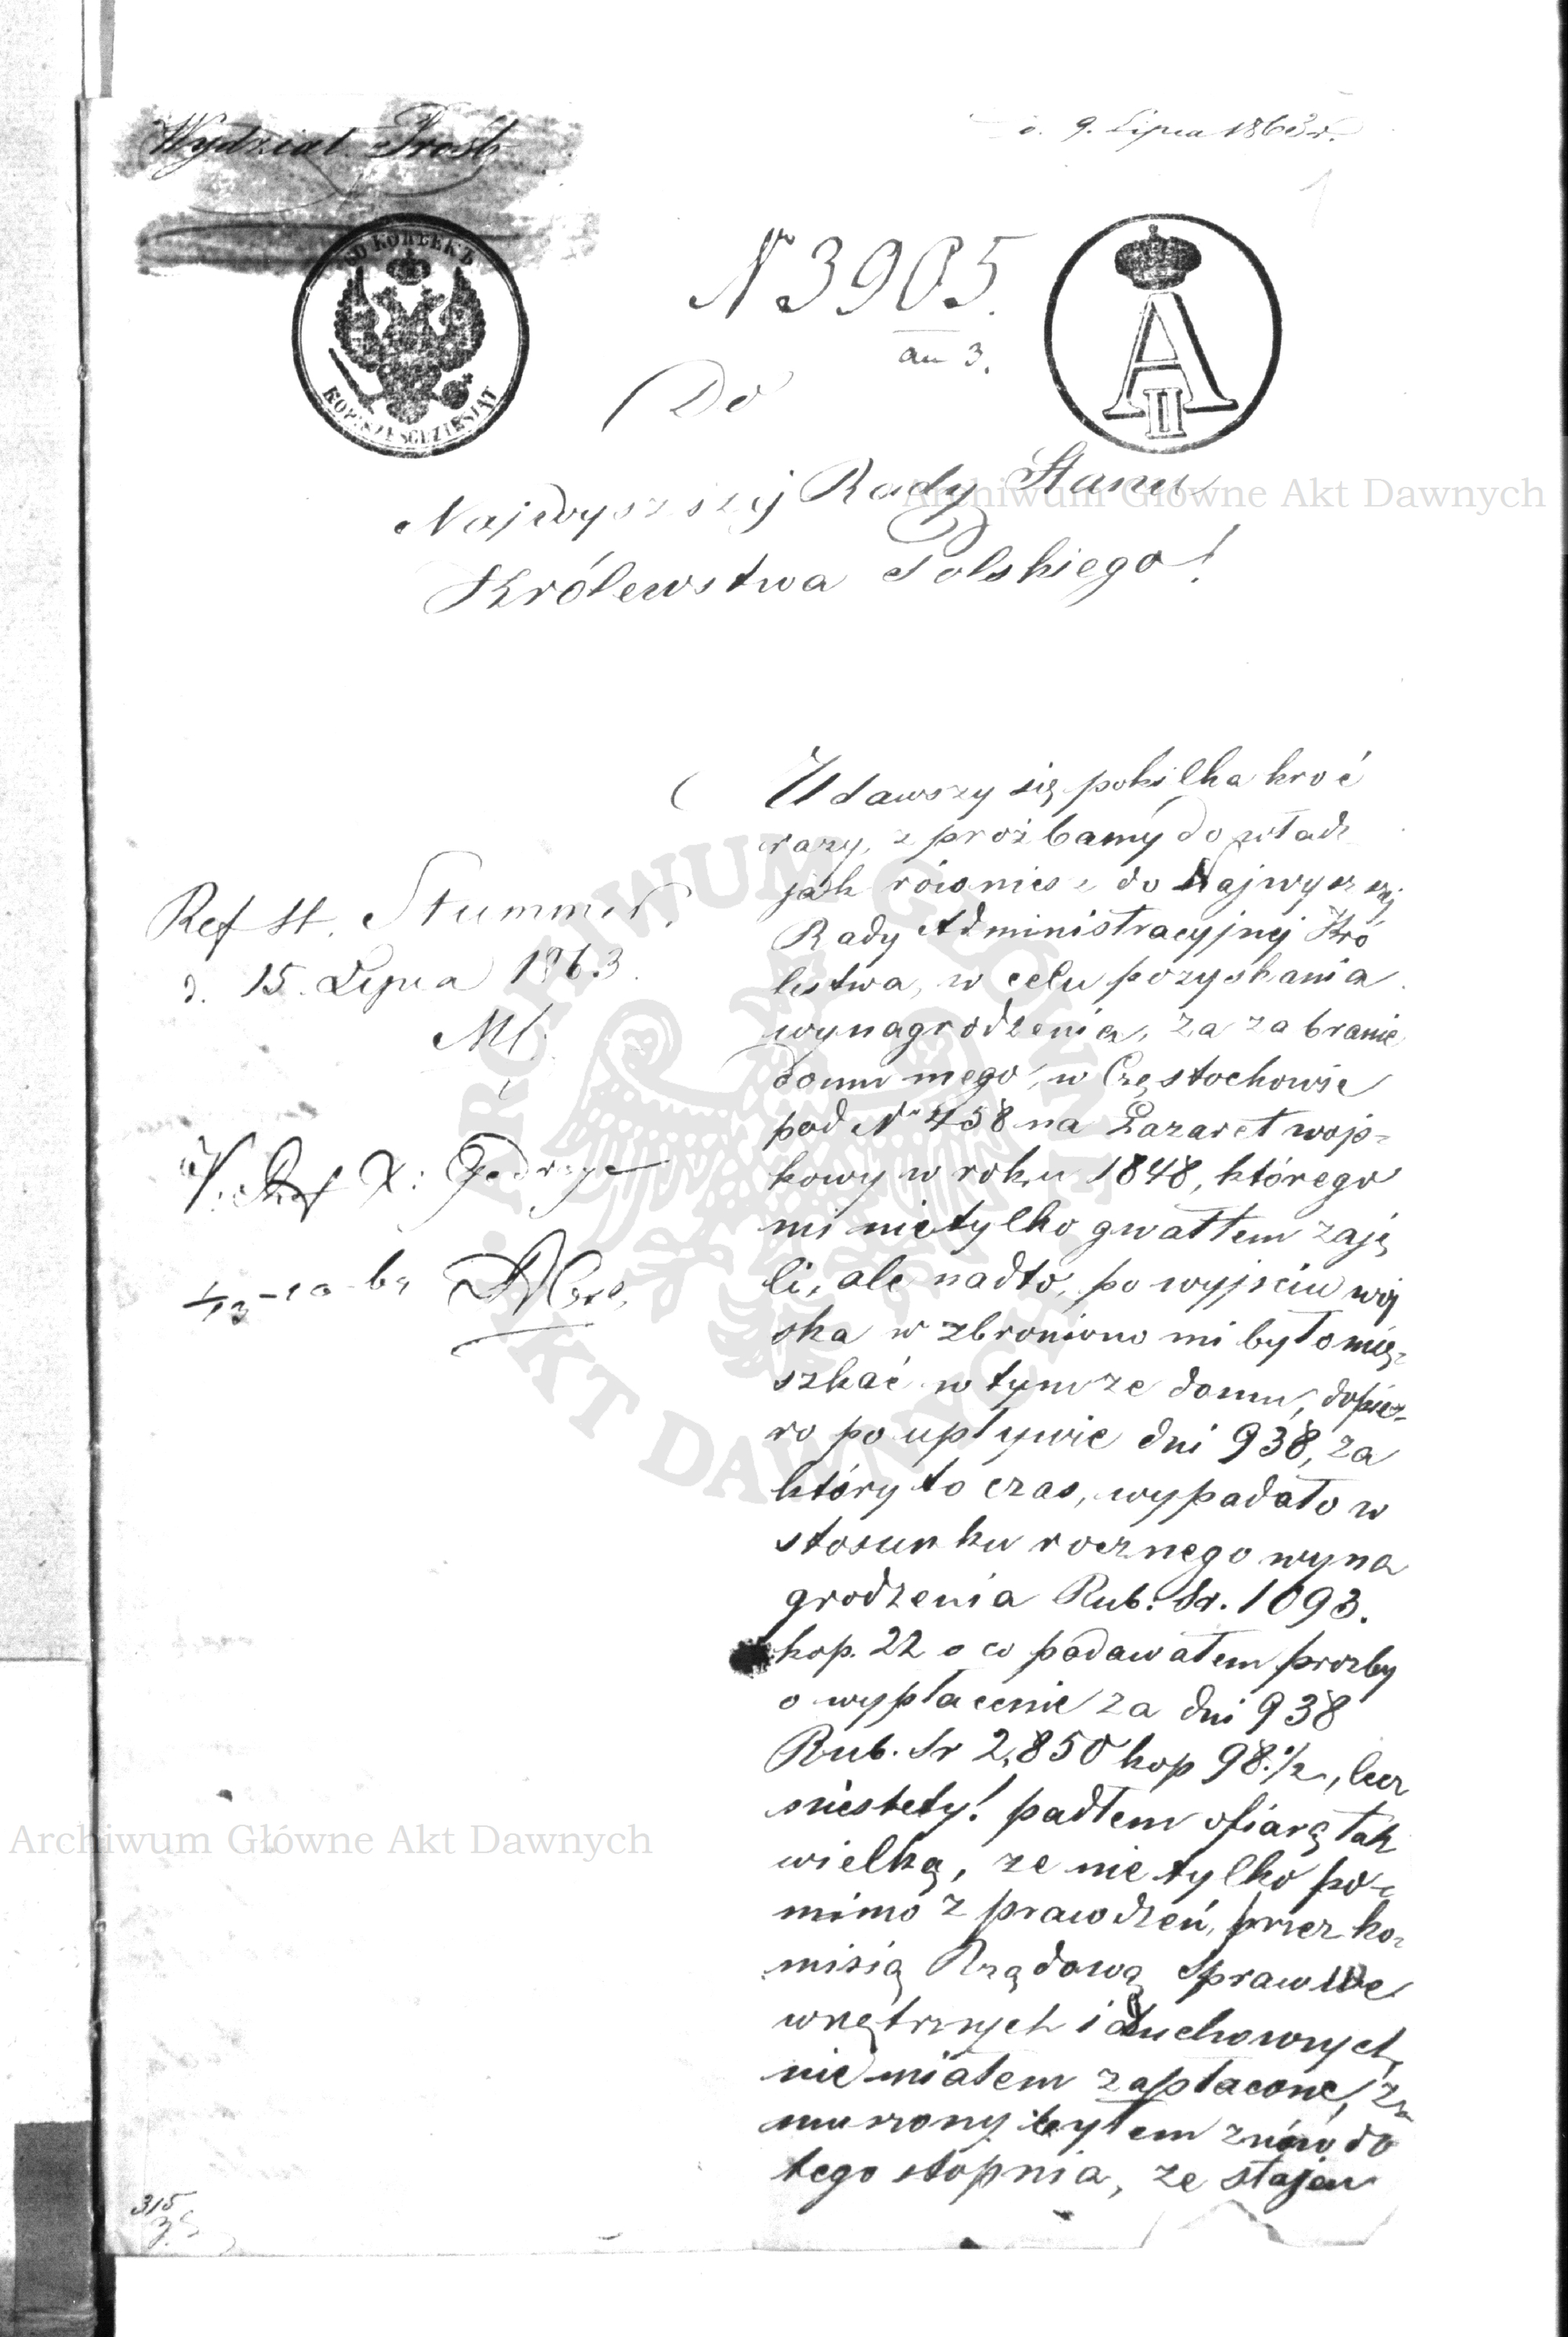 Wydział Prośb
d. 9. Lipca 1863 r.
KOPEEKЪ
N 3905.
A II
Do
Najwyższej Rady Stanu
Archiwum Główne Akt Dawnych
Królewstwa Polskiego!
Udawszy się pokilka kroć
razy, z prożbamy do władz
jak rówonież do Najwyszszej
Rady Administracyjnej Kró
lestwa, w celu pozyskania
wynagrodzenia, za zabranie
domu mego, w Częstochowie
pod N° 458 na Lazaret woj-
kowy w roku 1848, którego
mi nietylko gwałtem zaję
li, ale nadto, po wyjściu woj
ska w zbroniono mi było mię-
szkać w tymże domu, dopie-
ro po upływie dni 938, za
który to czas, wypadało w
stosunku rocznego wyna
grodzenia Rub: Sr. 1093.
kop. 22 o co podawałem prożby
o wypłacenie za dni 938
Rub. Sr 2,850 kop 98 1/2, lecz
niestety! padłem ofiarą tak
wielką, że nie tylko po-
mimo z prawdzeń, przez ko-
misią Rządową Spraw We
wnętrznych i Duchownych,
nie miałem zapłacone, z
muszony byłem znów do
tego stopnia, że stajen
Ref St. Stummer.
d. 15. Lipca 1863
ARCHIWUM GŁÓWNE AKT DAWNYCH
Archiwum Główne Akt Dawnych
315